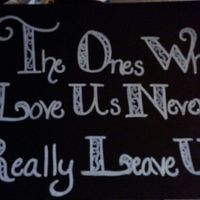 The Ones Wh
Love Us Never
Really Leave U